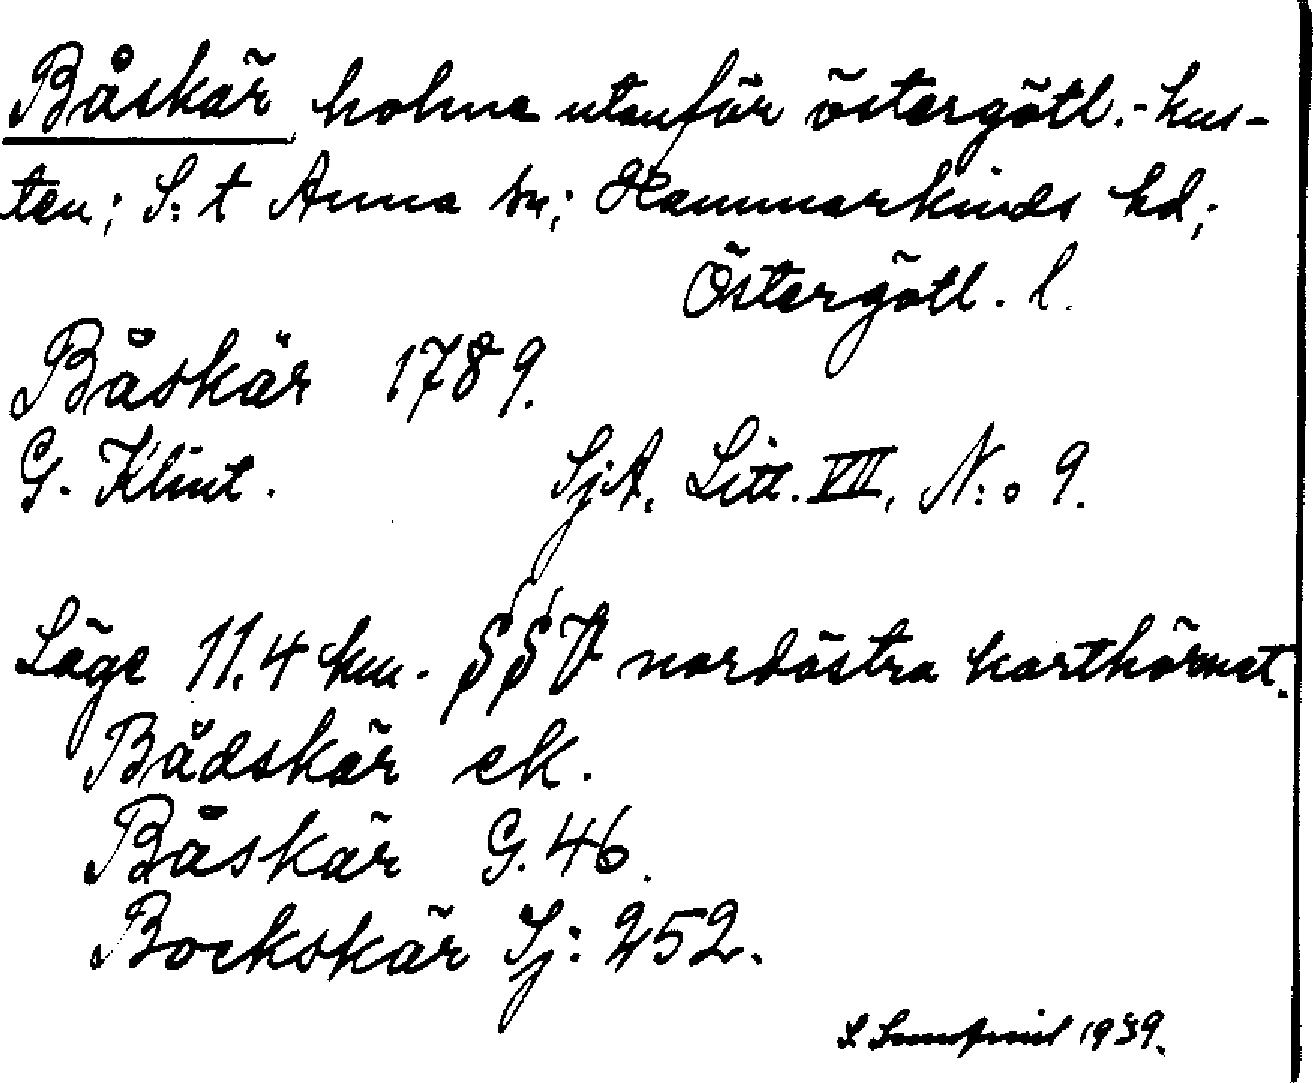 Båskär holme utanför östergötl.-kus-
ten; S:t Anna sn; Hammarkinds hd;
Östergötl. l.
Båskär 1789.
G. Klint. SjA. Litt. VII, N:o 9.
Läge 11.4 km. SSV nordöstra karthörnet.
Bådskär ek.
Båskär G. 46.
Bockskär Sj: 252.
1939.